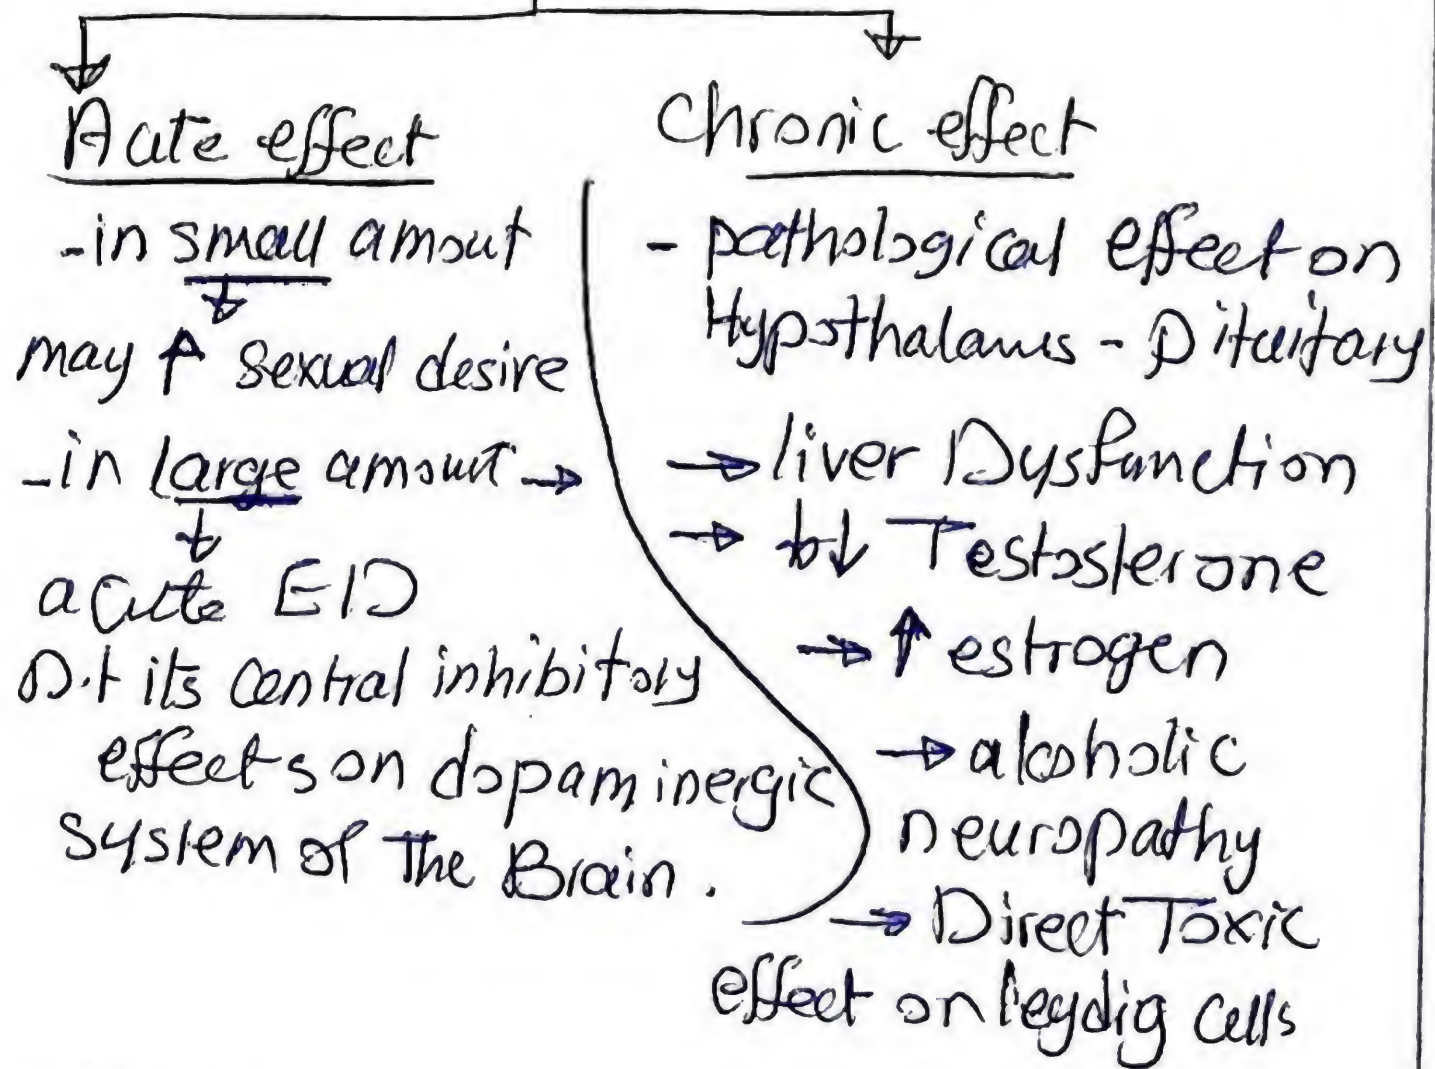 Acute effect
-in small amout
may ↑ sexual desire
-in large amount →
acute E/D
D.t its central inhibitory
effects on dopaminergic
system of The Brain.
Chronic effect
- pathological effect on
Hypothalamus - Pituitary
→ liver Dysfunction
→ ↓↓ Testosterone
→ ↑ estrogen
→ alcoholic
neuropathy
→ Direct Toxic
effect on leydig cells